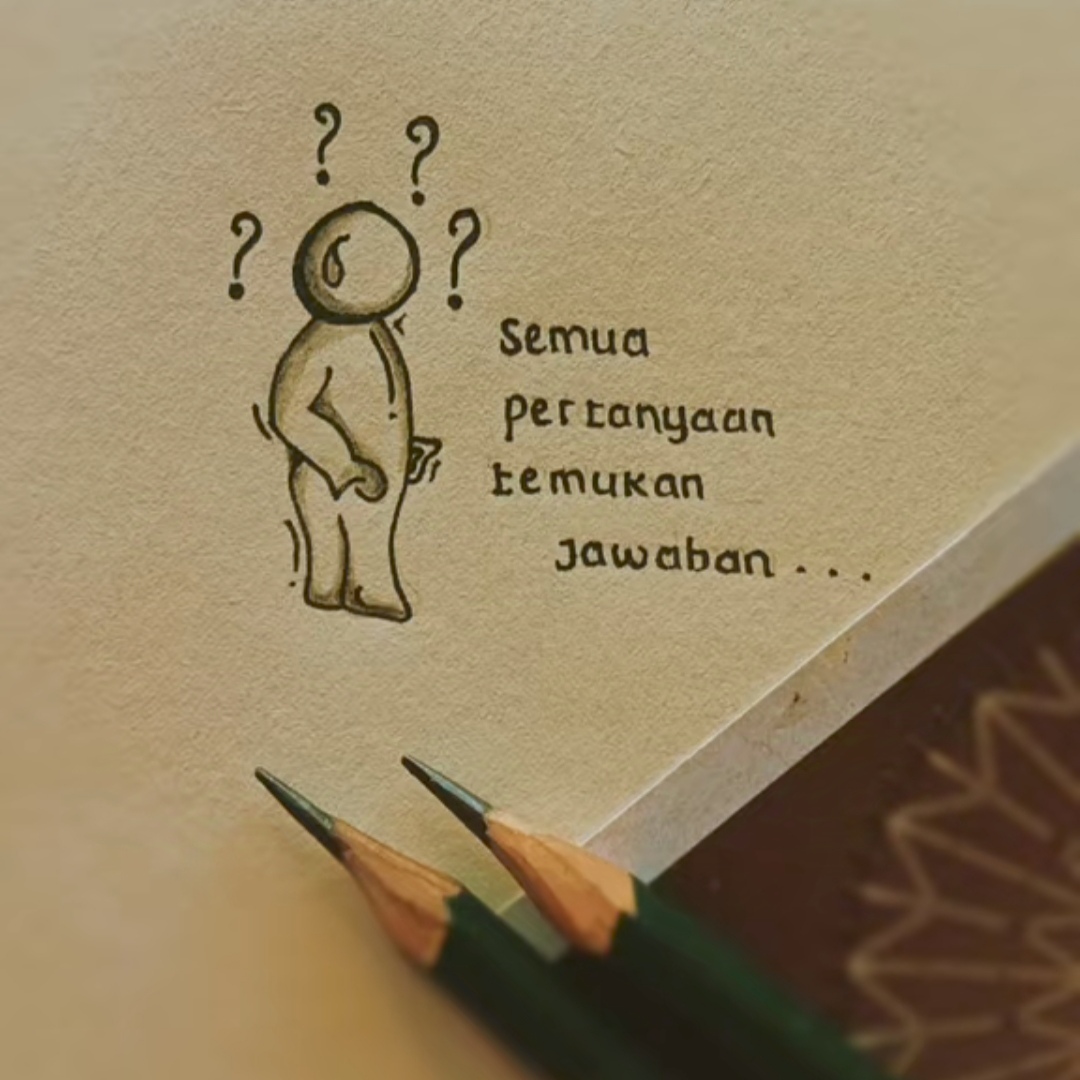 ? ? ? ?
Semua
pertanyaan
temukan
Jawaban . . .